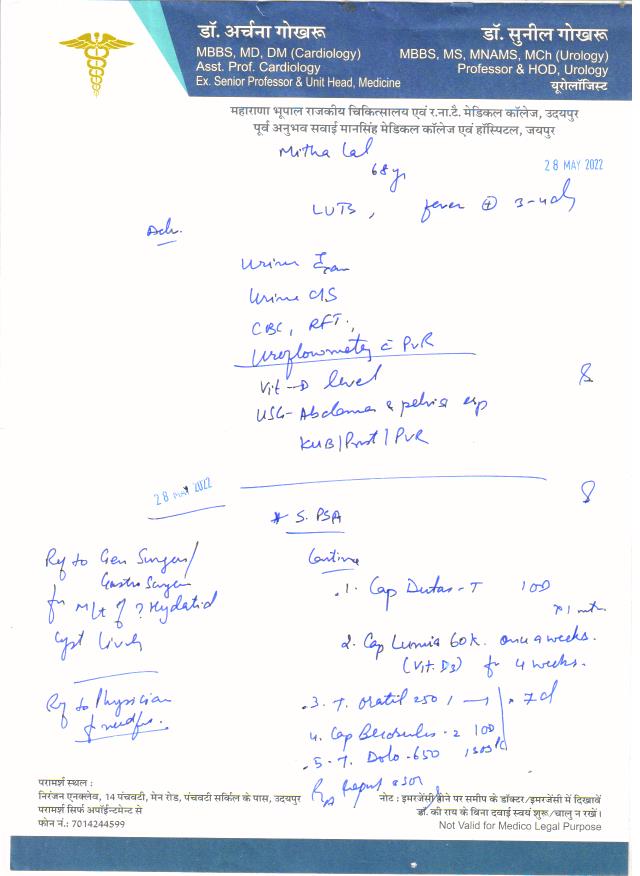 डॉ. अर्चना गोखरू
MBBS, MD, DM (Cardiology)
Asst. Prof. Cardiology
Ex. Senior Professor & Unit Head, Medicine
डॉ. सुनील गोखरू
MBBS, MS, MNAMS, MCh (Urology)
Professor & HOD, Urology
यूरोलॉजिस्ट
महाराणा भूपाल राजकीय चिकित्सालय एवं र.ना.टै. मेडिकल कॉलेज, उदयपुर
पूर्व अनुभव सवाई मानसिंह मेडिकल कॉलेज एवं हॉस्पिटल, जयपुर
Mitha Lal
68 yr
28 MAY 2022
LUTS, fever ⊕ 3-4 d
Adv.
Urine Exam
Urine C/S
CBC, RFT,
Uroflowmetry c̄ PVR
Vit-D level
USG- Abdomen & pelvis esp
KUB/Prost/PVR
28 MAY 2022
* S. PSA
Ref to Gen Surgeon/
Gastro Surgeon
for M/t of ? Hydatid
Cyst Liver
Ref to Physician
Continue
1. Cap Dutas-T 1OD
x 1 mth
2. Cap Lumia 60k. once a weeks.
(Vit. D3) for 4 weeks.
3. T. 250 1 — 1 x 7d
4. Cap 2 1OD
5. T. Dolo-650
परामर्श स्थल :
निरंजन एनक्लेव, 14 पंचवटी, मेन रोड, पंचवटी सर्किल के पास, उदयपुर
परामर्श सिर्फ अपॉईन्टमेन्ट से
फोन नं.: 7014244599
नोट : इमरजेंसी होने पर समीप के डॉक्टर/इमरजेंसी में दिखावें
डॉ. की राय के बिना दवाई स्वयं शुरू/चालु न रखें।
Not Valid for Medico Legal Purpose